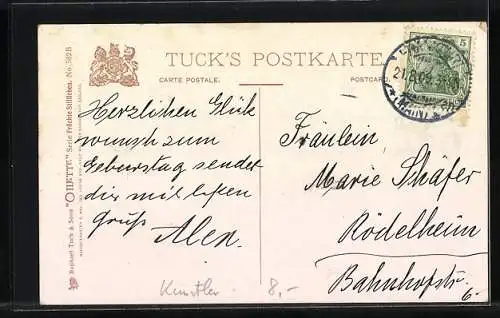 TUCK'S POSTKARTE.
CARTE POSTALE.
POSTCARD.
Raphael Tuck & Sons "OILETTE" Serie No. 582B
5
21.8.09.
(MAIN)
Herzlichen Glück
wunsch zum
Geburtstag sendet
dir mit besten
Gruß
Alex.
Fräulein
Marie Schäfer
Rödelheim
Bahnhofstr.
6.
Künstler.
8,-